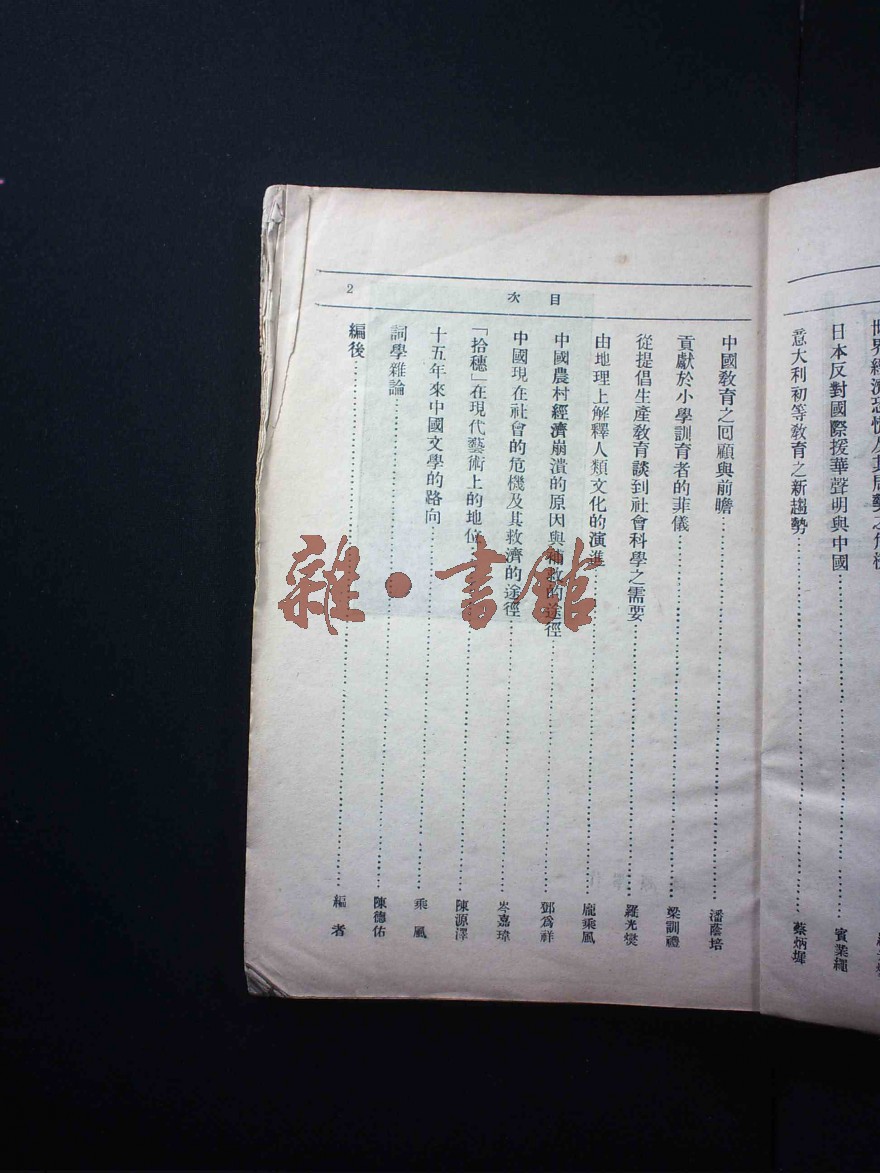 日本反對國際援華聲明與中國……賓業繩
意大利初等教育之新趨勢……蔡炳墀
目次
2
中國教育之回顧與前瞻……潘蔭培
貢獻於小學訓育者的菲儀……梁訓禮
從提倡生產教育談到社會科學之需要……羅光爕
由地理上解釋人類文化的演進……龐乘風
中國農村經濟崩潰的原因與補救的途徑……鄧爲祥
中國現在社會的危機及其救濟的途徑……岑嘉瑋
「拾穗」在現代藝術上的地位……陳源澤
十五年來中國文學的路向……乘風
詞學雜論……陳德佑
編後……編者
雜·書館